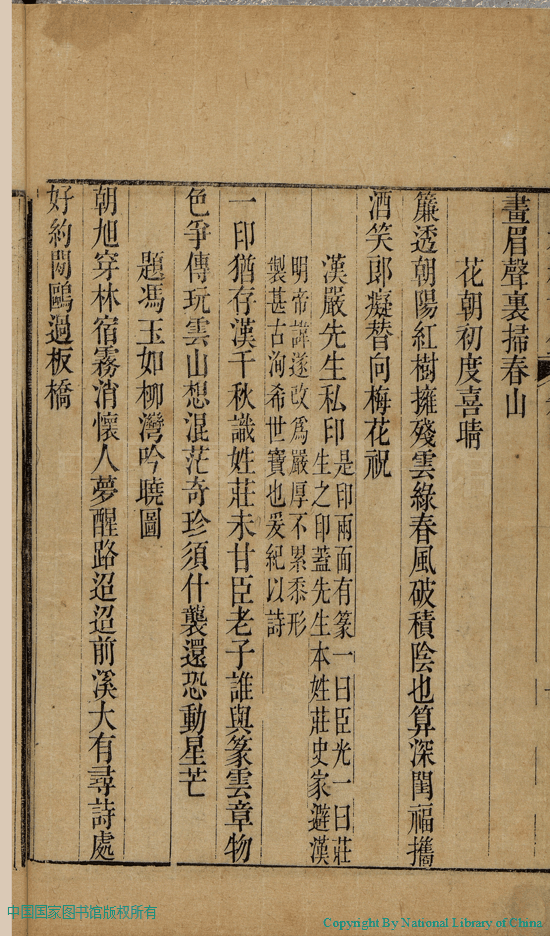 畫眉聲裏掃春山
花朝初度喜晴
簾透朝陽紅樹擁殘雲綠春風破積陰也算深閨福攜
酒笑郎癡替向梅花祝
漢嚴先生私印
是印兩面有篆一曰臣光一曰莊
生之印蓋先生本姓莊史家避漢
明帝諱遂改爲嚴厚不累黍形
製甚古洵希世寶也爰紀以詩
一印猶存漢千秋識姓莊未甘臣老子誰與篆雲章物
色爭傳玩雲山想混茫奇珍須什襲還恐動星芒
題馮玉如柳灣吟曉圖
朝旭穿林宿霧消懷人夢醒路迢迢前溪大有尋詩處
好約閒鷗過板橋
中国国家图书馆版权所有
Copyright By National Library of China